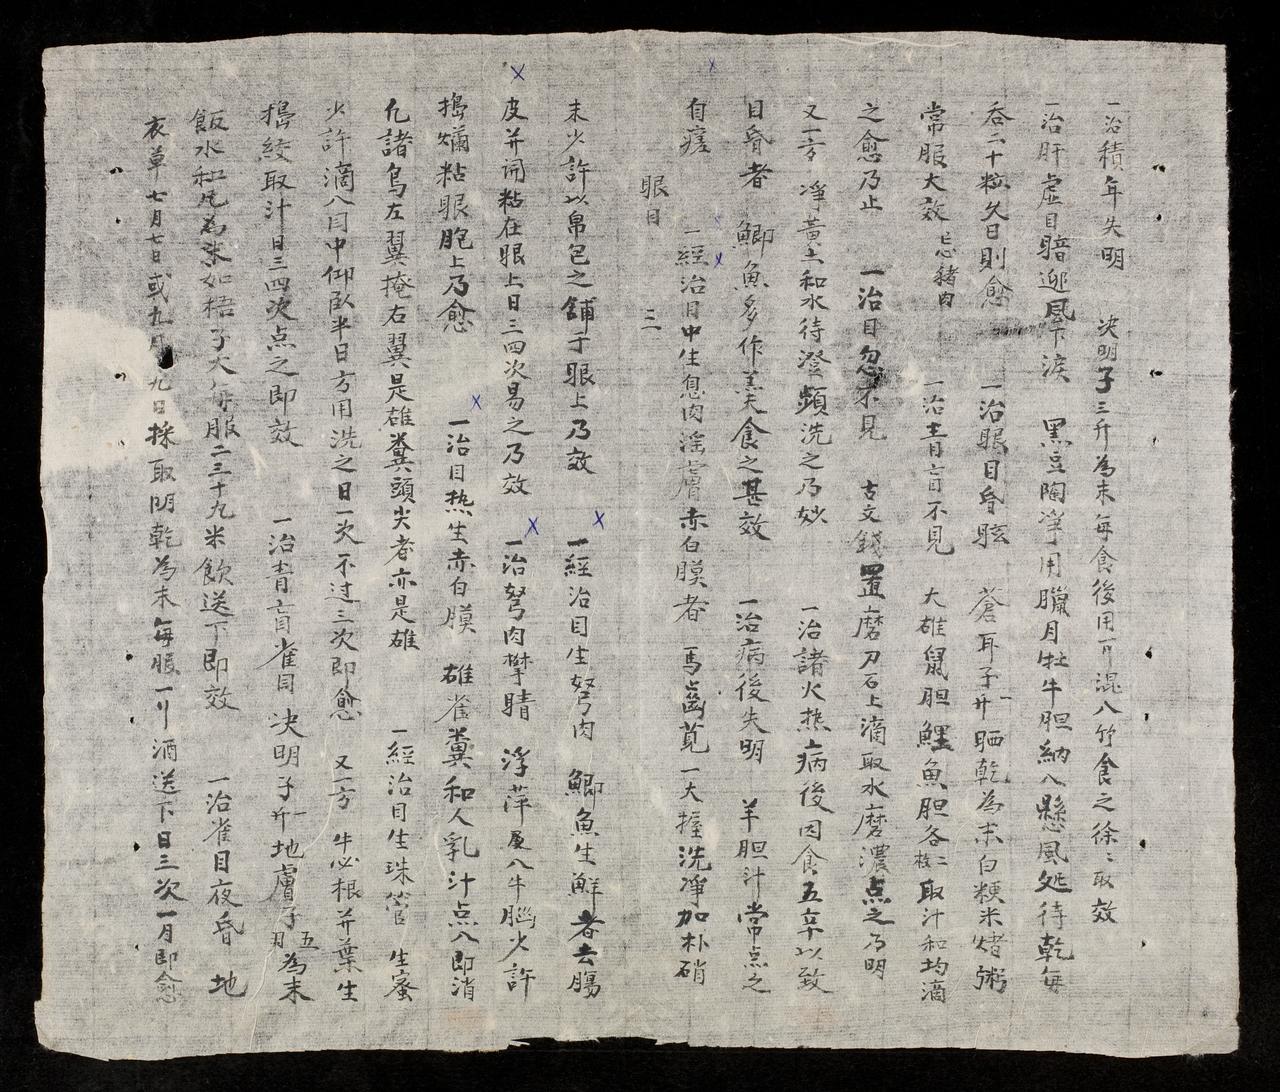 一治積年失明 决明子三升為末每食後用一匕混入竹食之徐〻取效
一治肝虛目暗迎風下淚 黑豆陶淨用臘月牡牛胆納入懸風処待乾每
吞二十粒久日則愈 一治眼目昏眩 蒼耳子一升晒乾為末白粳米煮粥
常服大效 忌猪肉 一治青盲不見 大雄鼠胆鯉魚胆各二枚取汁和均滴
之愈乃止 一治目忽不見 古文錢置磨刀石上滴取水磨濃点之乃明
又一方 淨黃土和水待澄頻洗之乃妙 一治諸火热病後因食五辛以致
目昏者 鯽魚多作羹食之甚效 一治病後失明 羊胆汁常点之
自瘥 一經治目中生息肉淫膚赤白膜者 馬齒莧一大握洗淨加朴硝
眼目 二
末少許以帛包之舖于眼上乃效 一經治目生努肉 鯽魚生鮮者去腸
皮并開粘在眼上日三四次易之乃效 一治努肉攀睛 浮萍 入牛腦少許
搗爛粘眼胞上乃愈 一治目热生赤白膜 雄雀糞和人乳汁点入即消
凢諸鳥左翼掩右翼是雄糞頭尖者亦是雄 一經治目生珠管 生蜜
少許滴入目中仰臥半日方用洗之日一次不过三次即愈 又一方 牛必根并葉生
搗絞取汁日三四次点之即效 一治青盲雀目 决明子一升地膚子五刃為末
飯水和凡為朱如梧子大每服二三十九米飲送下即效 一治雀目夜昏 地
衣草七月七日或九月九日採取阴乾為末每服一匕酒送下日三次一月即愈